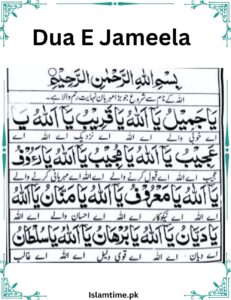 Dua E Jameela
بِسْمِ اللهِ الرَّحْمٰنِ الرَّحِيْمِ
اللہ کے نام سے شروع جو بڑا مہربان نہایت رحم والا ہے
يَا جَمِيْلُ يَا اَللهُ يَا قَرِيْبُ يَا اَللهُ يَا
اے اللہ اے نزدیک اے اللہ اے
عَجِيْبُ يَا اَللهُ يَا مُجِيْبُ يَا اَللهُ يَا رَءُوْفُ
اے اللہ اے قبول کرنے والے اے اللہ اے مہربانی کرنے والے
يَا اَللهُ يَا مَعْرُوْفُ يَا اَللهُ يَا مَنَّانُ يَا اَللهُ
اے اللہ اے نیکوکار اے اللہ اے احسان والے اے اللہ
يَا دَيَّانُ يَا اَللهُ يَا بُرْهَانُ يَا اَللهُ يَا سُلْطَانُ
اے دیان اے اللہ اے قوی دلیل اے اللہ اے غالب
Islamtime.pk